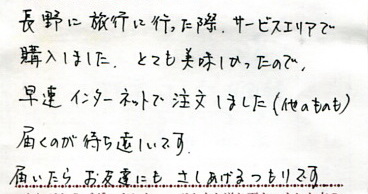 長野に旅行に行った際、サービスエリアで
購入しました。とても美味しかったので、
早速インターネットで注文しました(他のものも)
届くのが待ち遠しいです。
届いたらお友達にもさしあげるつもりです